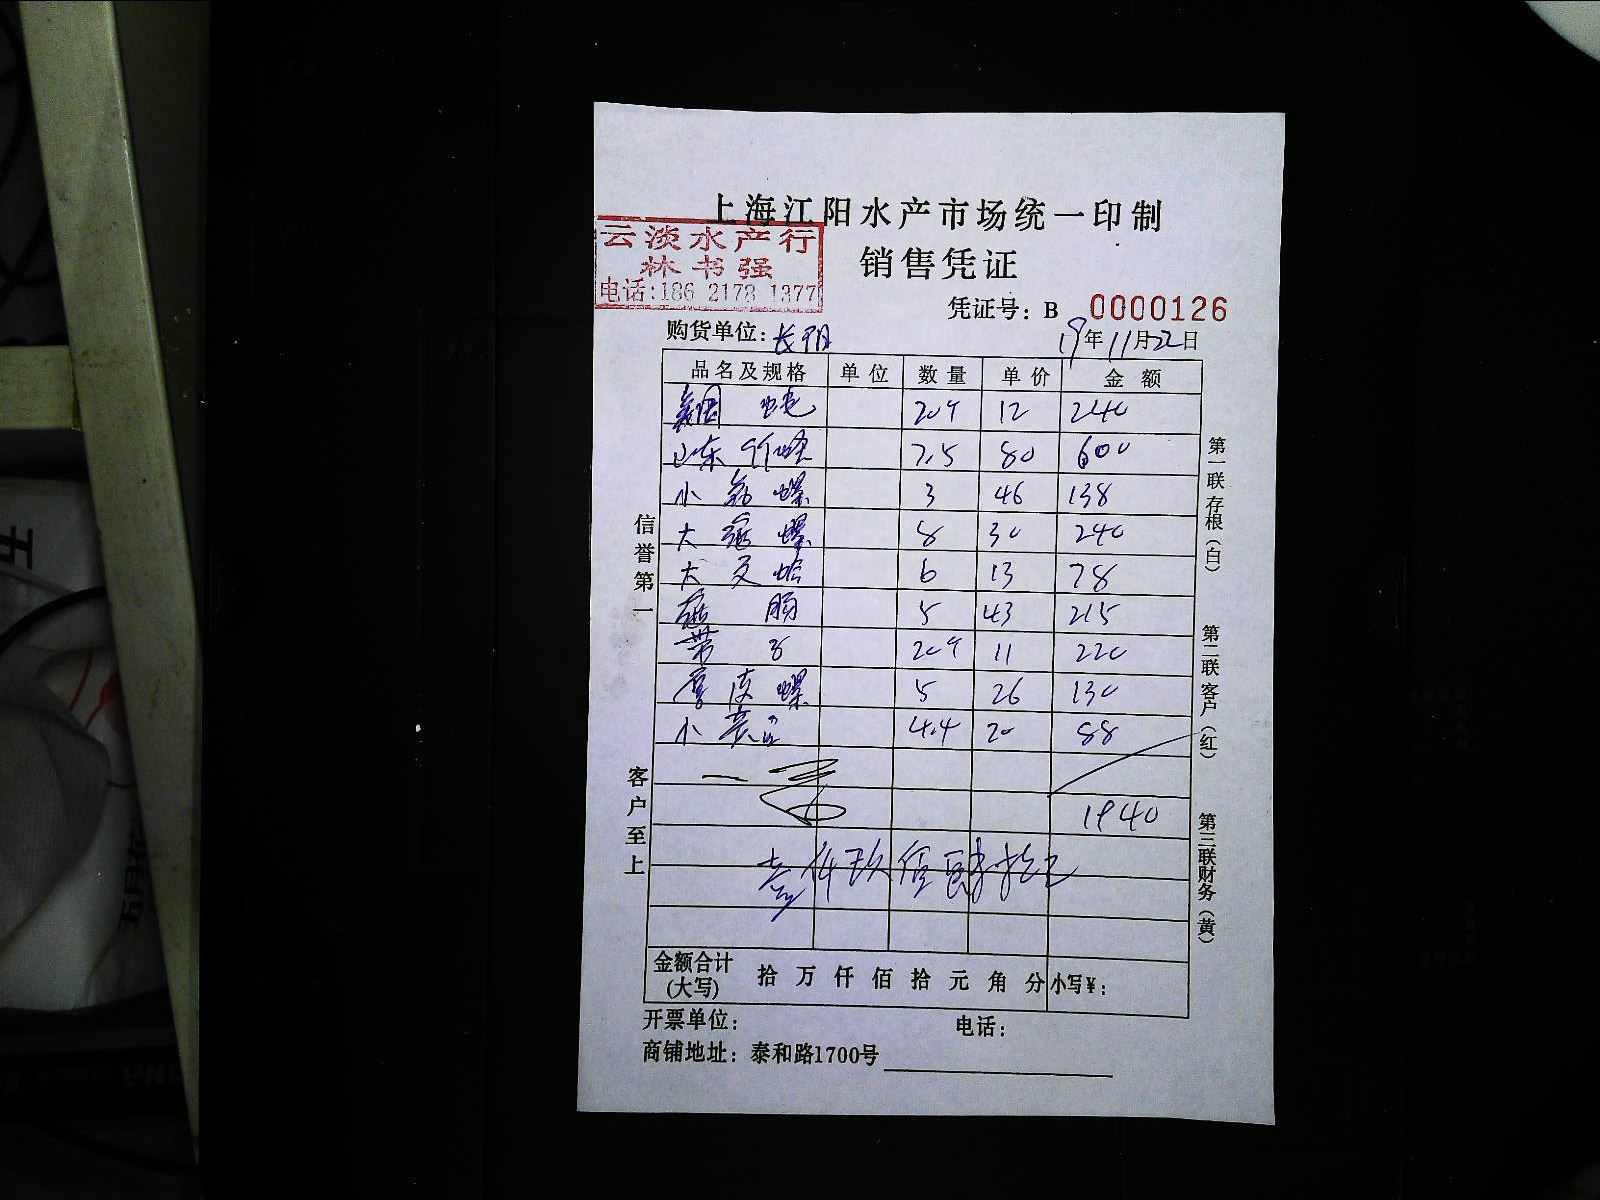 上海江阳水产市场统一印制
云淡水产行
林书强
电话:186 2178 1377
销售凭证
凭证号：B 0000126
购货单位：长阳
19年11月22日
品名及规格 单位 数量 单价 金额
209 12 240
山东 7.5 80 600
小 螺 3 46 138
大 螺 8 30 240
大 文蛤 6 13 78
肠 5 43 215
带子 209 11 220
厚皮螺 5 26 130
小 4.4 20 88
1940
壹仟玖佰肆拾元
金额合计
(大写)
拾 万 仟 佰 拾 元 角 分 小写¥：
开票单位：
电话：
商铺地址：泰和路1700号
信誉第一
客户至上
第一联存根(白)
第二联客户(红)
第三联财务(黄)
五